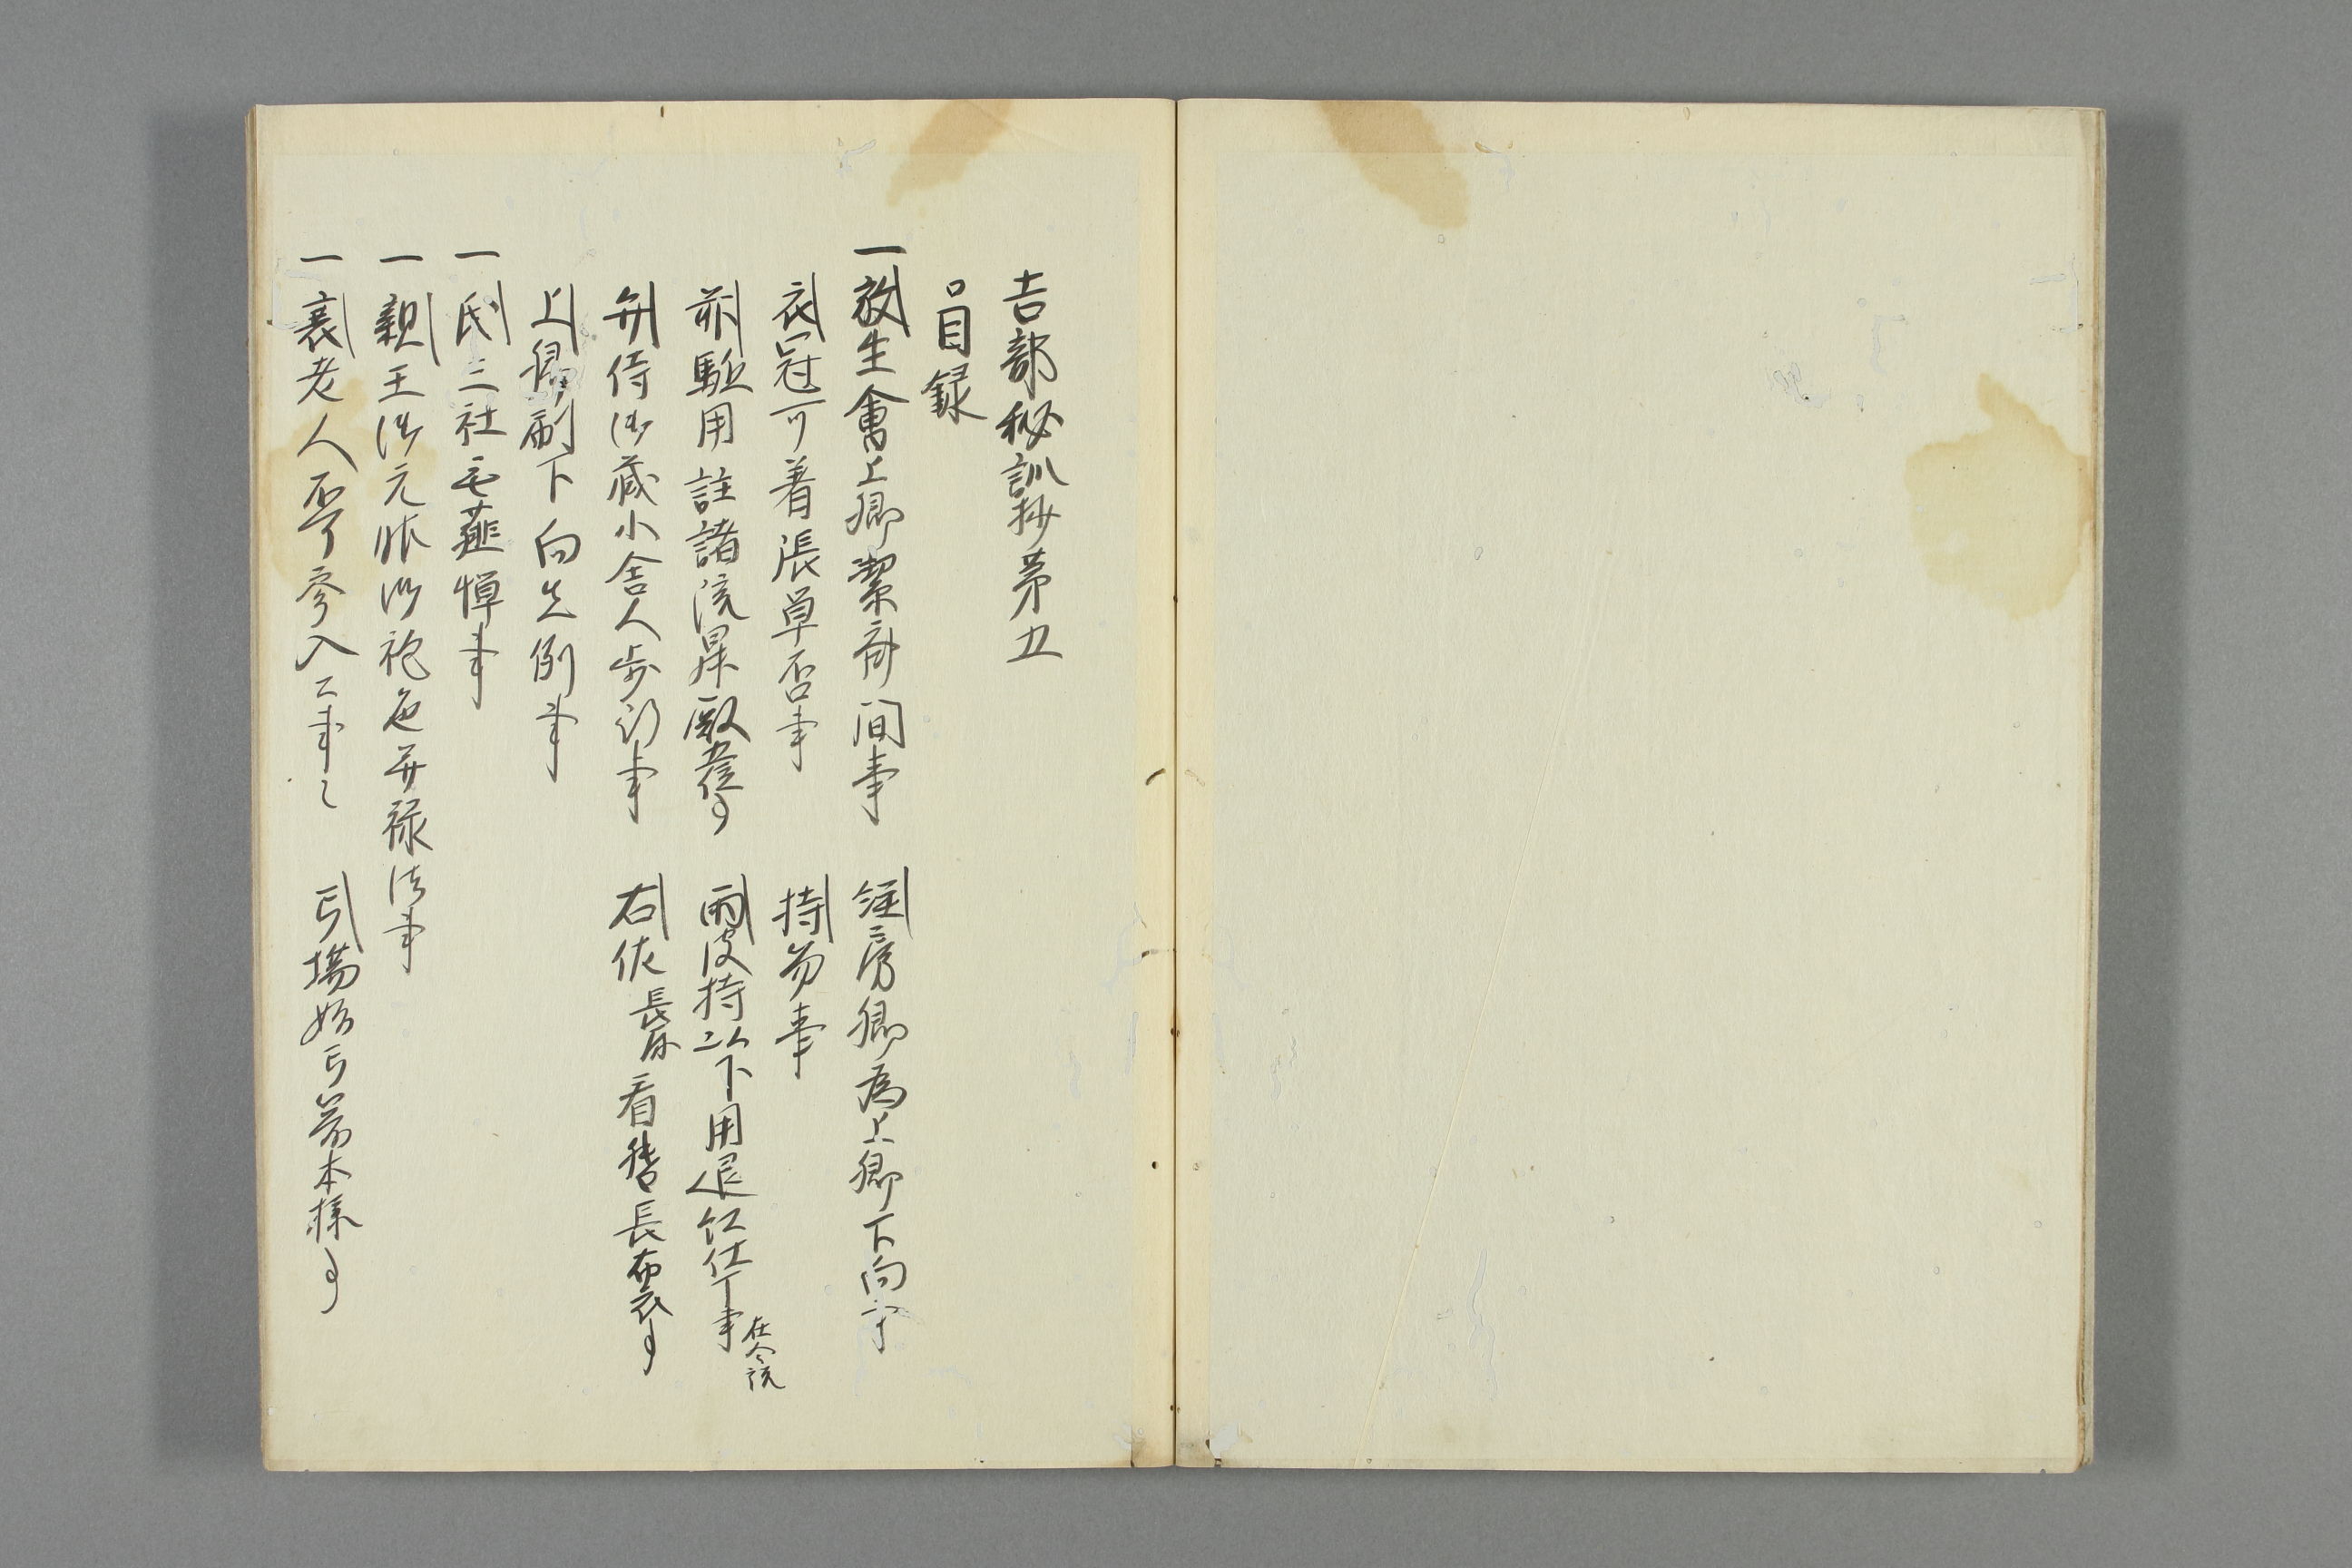 吉部秘訓抄第五
目録
一放生會上卿潔斎間事 経房卿為上卿下向事
衣冠可着張単否事 持笏事
前駈用諸院昇殿者事 雨皮持以下用退紅仕丁事 在今院
弁侍御蔵小舎人歩行事 右佐着長布衣事
上卿下向先例事
一氏三社憚事
一親王御元服御袍色并禄法事
一老人参入事 弓場始弓前本様事